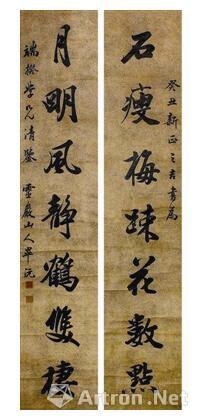 癸丑新正之吉書為
石瘦梅疎花數點
月明風靜鶴雙棲
端揆學兄清鑒
靈巖山人畢沅
Artron.Net